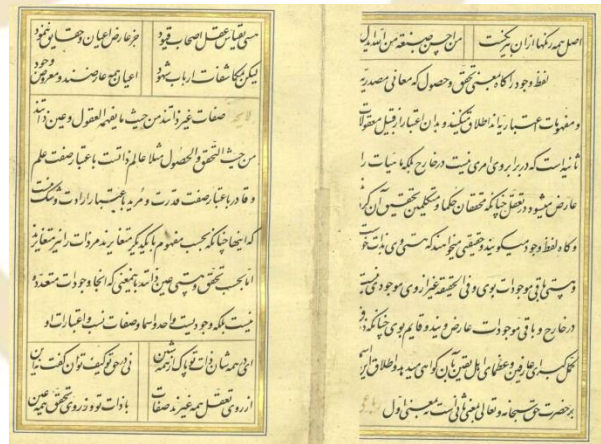 اصل همه رنگها ازان بیرنگیست من احسن صبغة من الله ای دل
لفظ وجود را گاه بمعنی تحقق و حصول که معانی مصدریه
و مفهومات اعتباریه اند اطلاق میکنند و بدان اعتبار از قبیل معقولات
ثانیه است که در برابر وی امری نیست در خارج بلکه ماهیات را
عارض میشود در تعقل چنانکه محققان حکما و متکلمین تحقیق آن کرده
و گاه لفظ وجود میگویند و حقیقتی میخواهند که هستی وی بذات خود
و هستی باقی موجودات بوی و فی الحقیقه غیر از وی موجودی نیست
در خارج و باقی موجودات عارض ویند و قایم بوی چنانکه ذوق
کمل کبرای عارفین و عظمای اهل یقین بآن گواهی میدهد و اطلاق این
بر حضرت حق سبحانه و تعالی بمعنی ثانیست نه بمعنی اول
هستی بقیاس عقل اصحاب قیود جز عارض اعیان و حقایق ننمود
لیکن بمکاشفات ارباب شهود اعیان همه عارضند و معروض وجود
صفات غیر ذاتند من حیث ما یفهمه العقول و عین ذاتند
من حیث التحقق و الحصول مثلا عالم ذاتست باعتبار صفت علم
و قادر باعتبار صفت قدرت و مرید باعتبار ارادت و شک نیست
که اینها چنانکه بحسب مفهوم با یکدیگر متغایرند مر ذات را نیز متغایرند
اما بحسب تحقق و هستی عین ذاتند باین معنی که آنجا وجودات متعدده
نیست بلکه وجودیست واحد و اسما و صفات نسب و اعتبارات او
ای در همه شان ذات تو پاک از همه شین نی در حق تو کیف توان گفت نه این
از روی تعقل همه غیرند صفات با ذات تو و ز روی تحقق همه عین